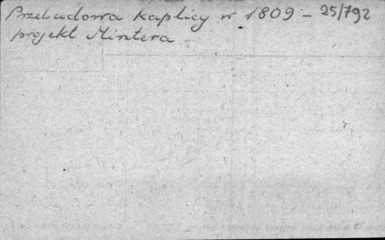 Przebudowa kaplicy w 1809 – 25/792
projekt Mintera –